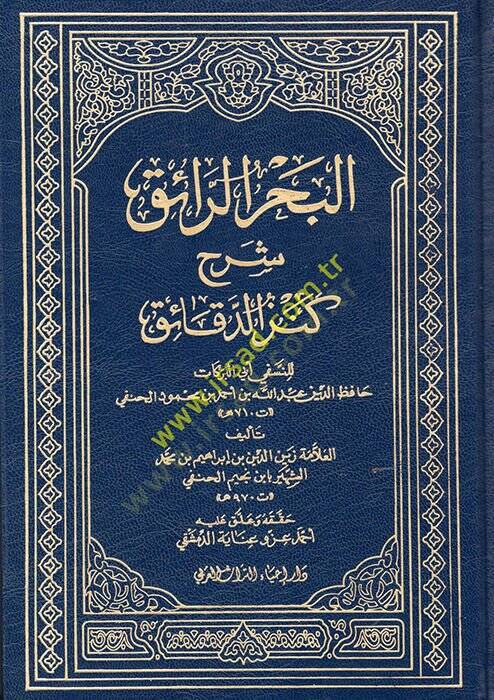 البحر الرائق
شرح
كنز الدقائق
للنسفي أبي البركات
حافظ الدين عبد الله بن أحمد بن محمود الحنفي
«ت ٧١٠هـ»
تأليف
العلامة زين الدين بن إبراهيم بن محمد
الشهير بابن نجيم الحنفي
«ت ٩٧٠هـ»
حققه وعلق عليه
أحمد عزو عناية الدمشقي
دار إحياء التراث العربي
www.irsad.com.tr